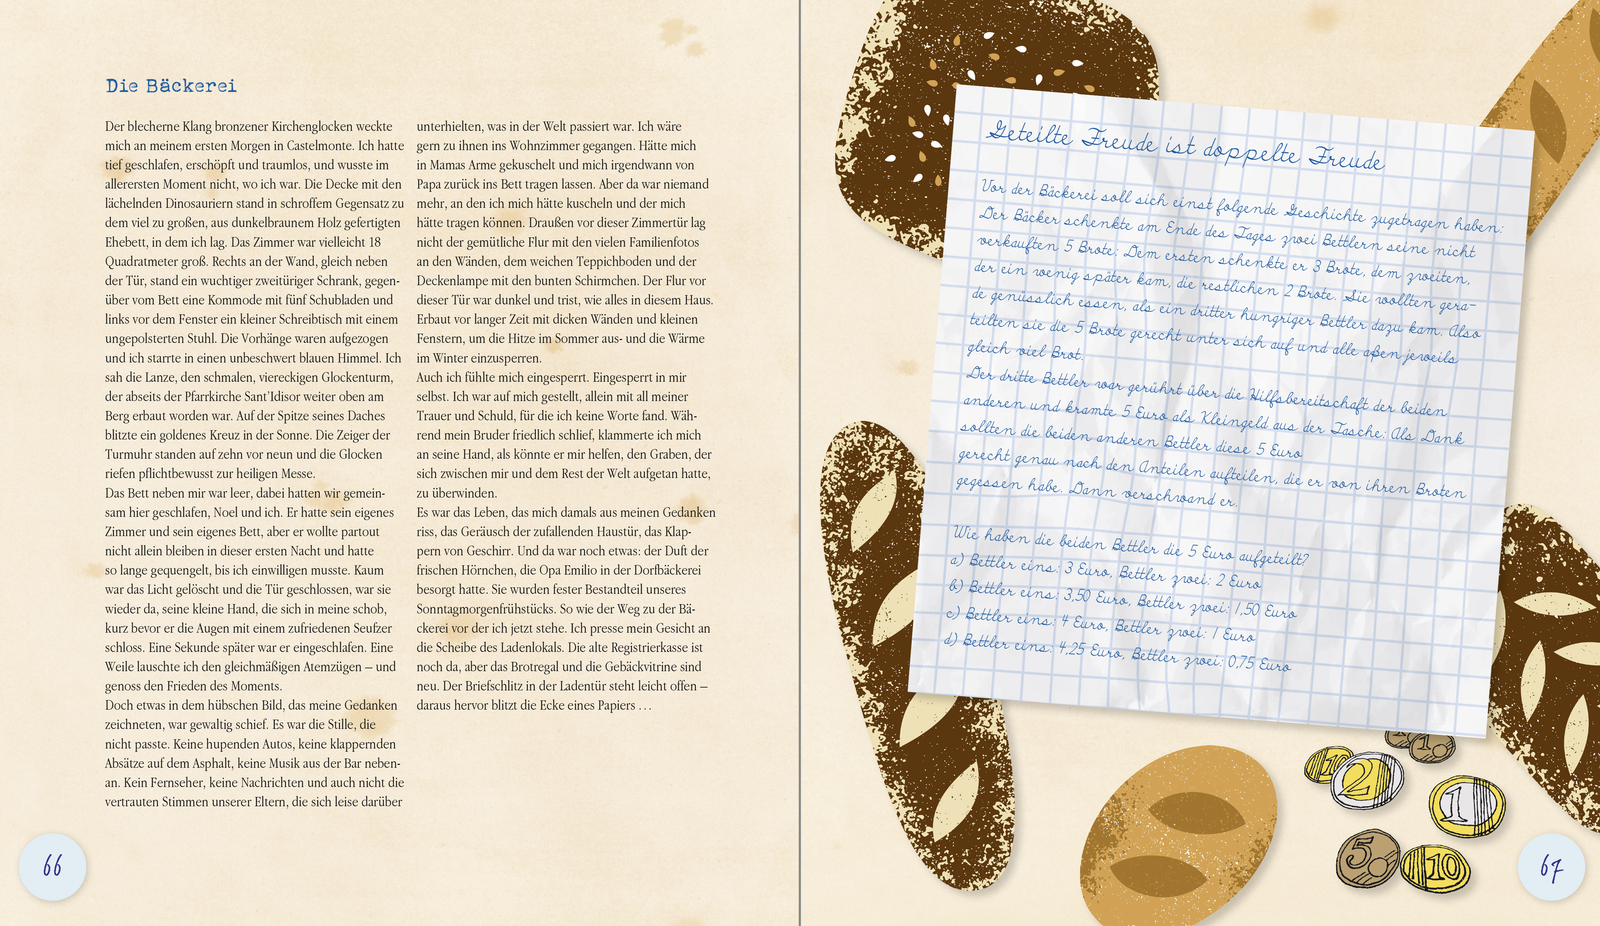 Die Bäckerei
Der blecherne Klang bronzener Kirchenglocken weckte
mich an meinem ersten Morgen in Castelmonte. Ich hatte
tief geschlafen, erschöpft und traumlos, und wusste im
allerersten Moment nicht, wo ich war. Die Decke mit den
lächelnden Dinosauriern stand in schroffem Gegensatz zu
dem viel zu großen, aus dunkelbraunem Holz gefertigten
Ehebett, in dem ich lag. Das Zimmer war vielleicht 18
Quadratmeter groß. Rechts an der Wand, gleich neben
der Tür, stand ein wuchtiger zweitüriger Schrank, gegen-
über vom Bett eine Kommode mit fünf Schubladen und
links vor dem Fenster ein kleiner Schreibtisch mit einem
ungepolsterten Stuhl. Die Vorhänge waren aufgezogen
und ich starrte in einen unbeschwert blauen Himmel. Ich
sah die Lanze, den schmalen, viereckigen Glockenturm,
der abseits der Pfarrkirche Sant'Idisor weiter oben am
Berg erbaut worden war. Auf der Spitze seines Daches
blitzte ein goldenes Kreuz in der Sonne. Die Zeiger der
Turmuhr standen auf zehn vor neun und die Glocken
riefen pflichtbewusst zur heiligen Messe.
Das Bett neben mir war leer, dabei hatten wir gemein-
sam hier geschlafen, Noel und ich. Er hatte sein eigenes
Zimmer und sein eigenes Bett, aber er wollte partout
nicht allein bleiben in dieser ersten Nacht und hatte
so lange gequengelt, bis ich einwilligen musste. Kaum
war das Licht gelöscht und die Tür geschlossen, war sie
wieder da, seine kleine Hand, die sich in meine schob,
kurz bevor er die Augen mit einem zufriedenen Seufzer
schloss. Eine Sekunde später war er eingeschlafen. Eine
Weile lauschte ich den gleichmäßigen Atemzügen – und
genoss den Frieden des Moments.
Doch etwas in dem hübschen Bild, das meine Gedanken
zeichneten, war gewaltig schief. Es war die Stille, die
nicht passte. Keine hupenden Autos, keine klappernden
Absätze auf dem Asphalt, keine Musik aus der Bar neben-
an. Kein Fernseher, keine Nachrichten und auch nicht die
vertrauten Stimmen unserer Eltern, die sich leise darüber
unterhielten, was in der Welt passiert war. Ich wäre
gern zu ihnen ins Wohnzimmer gegangen. Hätte mich
in Mamas Arme gekuschelt und mich irgendwann von
Papa zurück ins Bett tragen lassen. Aber da war niemand
mehr, an den ich mich hätte kuscheln und der mich
hätte tragen können. Draußen vor dieser Zimmertür lag
nicht der gemütliche Flur mit den vielen Familienfotos
an den Wänden, dem weichen Teppichboden und der
Deckenlampe mit den bunten Schirmchen. Der Flur vor
dieser Tür war dunkel und trist, wie alles in diesem Haus.
Erbaut vor langer Zeit mit dicken Wänden und kleinen
Fenstern, um die Hitze im Sommer aus- und die Wärme
im Winter einzusperren.
Auch ich fühlte mich eingesperrt. Eingesperrt in mir
selbst. Ich war auf mich gestellt, allein mit all meiner
Trauer und Schuld, für die ich keine Worte fand. Wäh-
rend mein Bruder friedlich schlief, klammerte ich mich
an seine Hand, als könnte er mir helfen, den Graben, der
sich zwischen mir und dem Rest der Welt aufgetan hatte,
zu überwinden.
Es war das Leben, das mich damals aus meinen Gedanken
riss, das Geräusch der zufallenden Haustür, das Klap-
pern von Geschirr. Und da war noch etwas: der Duft der
frischen Hörnchen, die Opa Emilio in der Dorfbäckerei
besorgt hatte. Sie wurden fester Bestandteil unseres
Sonntagmorgenfrühstücks. So wie der Weg zu der Bä-
ckerei vor der ich jetzt stehe. Ich presse mein Gesicht an
die Scheibe des Ladenlokals. Die alte Registrierkasse ist
noch da, aber das Brotregal und die Gebäckvitrine sind
neu. Der Briefschlitz in der Ladentür steht leicht offen –
daraus hervor blitzt die Ecke eines Papiers ...
66
Geteilte Freude ist doppelte Freude
Vor der Bäckerei soll sich einst folgende Geschichte zugetragen haben:
Der Bäcker schenkte am Ende des Tages zwei Bettlern seine nicht
verkauften 5 Brote: Dem ersten schenkte er 3 Brote, dem zweiten,
der ein wenig später kam, die restlichen 2 Brote. Sie wollten gera-
de genüsslich essen, als ein dritter hungriger Bettler dazu kam. Also
teilten sie die 5 Brote gerecht unter sich auf und alle aßen jeweils
gleich viel Brot.
Der dritte Bettler war gerührt über die Hilfsbereitschaft der beiden
anderen und kramte 5 Euro als Kleingeld aus der Tasche: Als Dank
sollten die beiden anderen Bettler diese 5 Euro
gerecht genau nach den Anteilen aufteilen, die er von ihren Broten
gegessen habe. Dann verschwand er.
Wie haben die beiden Bettler die 5 Euro aufgeteilt?
a) Bettler eins: 3 Euro, Bettler zwei: 2 Euro
b) Bettler eins: 3,50 Euro, Bettler zwei: 1,50 Euro
c) Bettler eins: 4 Euro, Bettler zwei: 1 Euro
d) Bettler eins: 4,25 Euro, Bettler zwei: 0,75 Euro
10
2
1
5
10
67